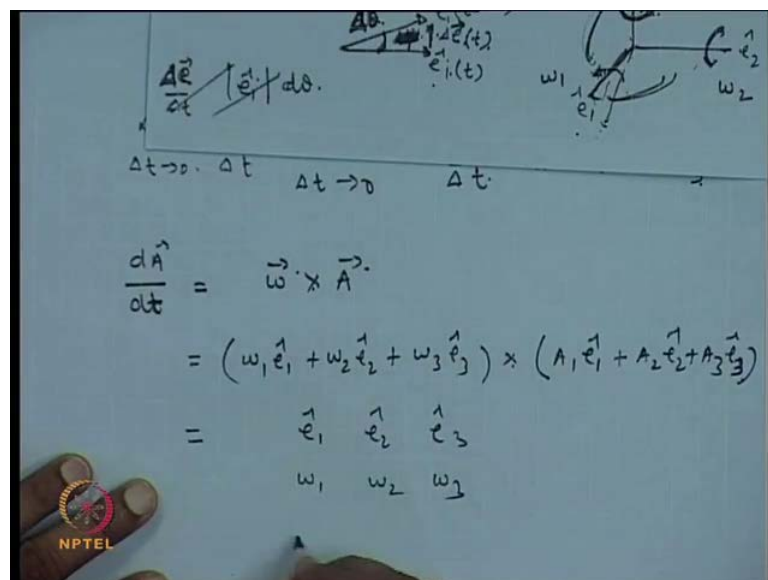 Δθ. Δe⃗(t)
e⃗ᵢ(t)
Δe⃗/Δt |e⃗ᵢ| dθ.
ω₁ ê₁ ê₂ ω₂
Δt→0. Δt Δt→0 Δt.
dA⃗/dt = ω⃗ × A⃗
= (ω₁ê₁ + ω₂ê₂ + ω₃ê₃) × (A₁ê₁ + A₂ê₂ + A₃ê₃)
= ê₁ ê₂ ê₃
ω₁ ω₂ ω₃
NPTEL